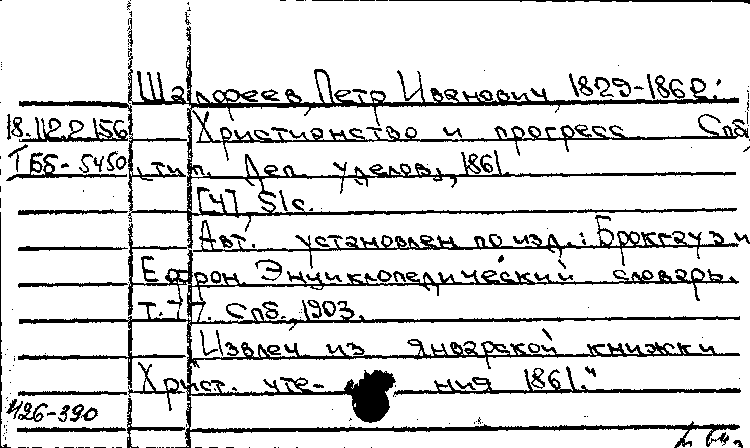 Шалфеев, Петр Иванович, 1829-1862.
18.112.2.156 Христианство и прогресс Спб,
Т ББ-5450 тип. Деп. уделов, 1861.
[4], 51с.
Авт. установлен по изд.: Брокгауз и
Ефрон. Энциклопедический словарь.
Т.77. Спб., 1903.
"Извлеч из январской книжки
Христ. чте- ния 1861."
426-390